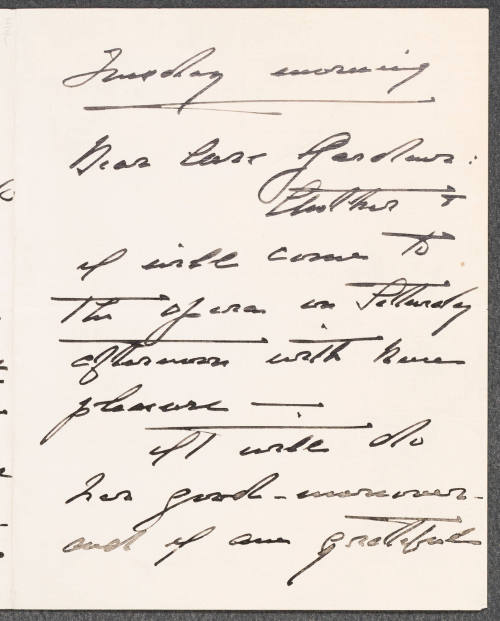 Tuesday morning
Dear Gardner:
Mother &
I will come to
the opera on Saturday
afternoon with keen
pleasure —
It will do
her good - moreover -
and I am grateful